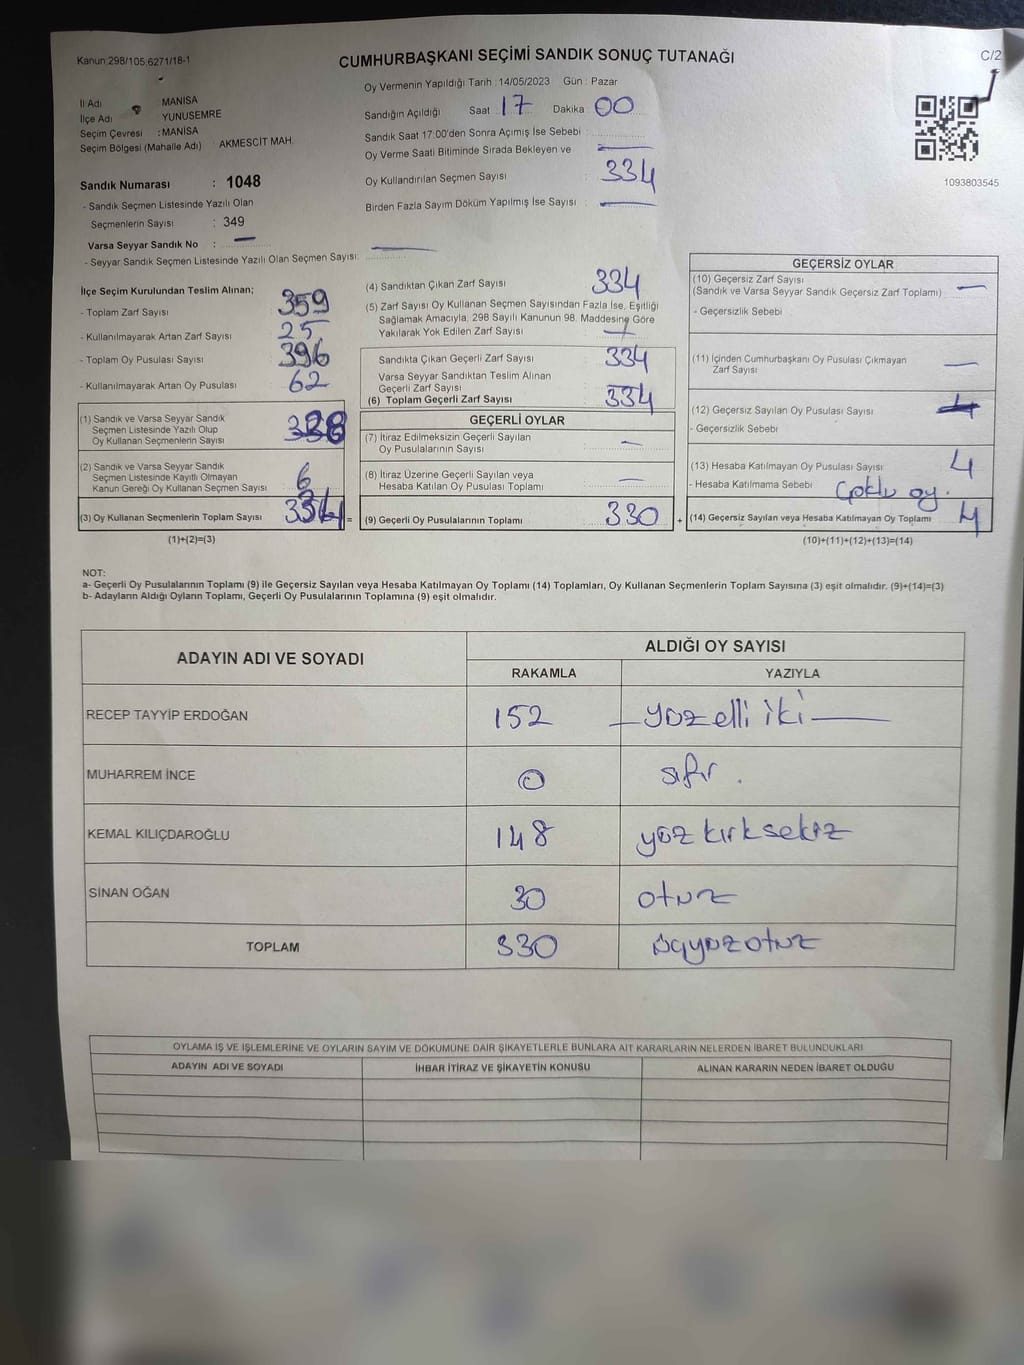 Kanun:298/105;6271/18-1
CUMHURBAŞKANI SEÇİMİ SANDIK SONUÇ TUTANAĞI
C/2
İl Adı : MANİSA
İlçe Adı : YUNUSEMRE
Seçim Çevresi : MANİSA
Seçim Bölgesi (Mahalle Adı) : AKMESCİT MAH.
Sandık Numarası : 1048
- Sandık Seçmen Listesinde Yazılı Olan
Seçmenlerin Sayısı : 349
Varsa Seyyar Sandık No : —
- Seyyar Sandık Seçmen Listesinde Yazılı Olan Seçmen Sayısı: —
Oy Vermenin Yapıldığı Tarih : 14/05/2023 Gün : Pazar
Sandığın Açıldığı Saat 17 Dakika 00
Sandık Saat 17:00'den Sonra Açımış İse Sebebi :
Oy Verme Saati Bitiminde Sırada Bekleyen ve —
Oy Kullandırılan Seçmen Sayısı : 334
Birden Fazla Sayım Döküm Yapılmış İse Sayısı : —
1093803545
İlçe Seçim Kurulundan Teslim Alınan;
- Toplam Zarf Sayısı : 359
- Kullanılmayarak Artan Zarf Sayısı : 25
- Toplam Oy Pusulası Sayısı : 396
- Kullanılmayarak Artan Oy Pusulası : 62
(1) Sandık ve Varsa Seyyar Sandık
Seçmen Listesinde Yazılı Olup
Oy Kullanan Seçmenlerin Sayısı 328
(2) Sandık ve Varsa Seyyar Sandık
Seçmen Listesinde Kayıtlı Olmayan
Kanun Gereği Oy Kullanan Seçmen Sayısı 6
(3) Oy Kullanan Seçmenlerin Toplam Sayısı 334 =
(1)+(2)=(3)
(4) Sandıktan Çıkan Zarf Sayısı : 334
(5) Zarf Sayısı Oy Kullanan Seçmen Sayısından Fazla İse, Eşitliği
Sağlamak Amacıyla, 298 Sayılı Kanunun 98. Maddesine Göre
Yakılarak Yok Edilen Zarf Sayısı : —
Sandıkta Çıkan Geçerli Zarf Sayısı : 334
Varsa Seyyar Sandıktan Teslim Alınan
Geçerli Zarf Sayısı
(6) Toplam Geçerli Zarf Sayısı : 334
GEÇERLİ OYLAR
(7) İtiraz Edilmeksizin Geçerli Sayılan
Oy Pusulalarının Sayısı —
(8) İtiraz Üzerine Geçerli Sayılan veya
Hesaba Katılan Oy Pusulası Toplamı —
(9) Geçerli Oy Pusulalarının Toplamı 330 +
GEÇERSİZ OYLAR
(10) Geçersiz Zarf Sayısı
(Sandık ve Varsa Seyyar Sandık Geçersiz Zarf Toplamı) —
- Geçersizlik Sebebi
(11) İçinden Cumhurbaşkanı Oy Pusulası Çıkmayan
Zarf Sayısı —
(12) Geçersiz Sayılan Oy Pusulası Sayısı 4
- Geçersizlik Sebebi
(13) Hesaba Katılmayan Oy Pusulası Sayısı 4
- Hesaba Katılmama Sebebi Çoklu oy.
(14) Geçersiz Sayılan veya Hesaba Katılmayan Oy Toplamı 4
(10)+(11)+(12)+(13)=(14)
NOT:
a- Geçerli Oy Pusulalarının Toplamı (9) ile Geçersiz Sayılan veya Hesaba Katılmayan Oy Toplamı (14) Toplamları, Oy Kullanan Seçmenlerin Toplam Sayısına (3) eşit olmalıdır. (9)+(14)=(3)
b- Adayların Aldığı Oyların Toplamı, Geçerli Oy Pusulalarının Toplamına (9) eşit olmalıdır.
ADAYIN ADI VE SOYADI
ALDIĞI OY SAYISI
RAKAMLA YAZIYLA
RECEP TAYYİP ERDOĞAN 152 — yüzelli iki —
MUHARREM İNCE 0 sıfır.
KEMAL KILIÇDAROĞLU 148 yüz kırk sekiz
SİNAN OĞAN 30 otuz
TOPLAM 330 üçyüzotuz
OYLAMA İŞ VE İŞLEMLERİNE VE OYLARIN SAYIM VE DÖKÜMÜNE DAİR ŞİKAYETLERLE BUNLARA AİT KARARLARIN NELERDEN İBARET BULUNDUKLARI
ADAYIN ADI VE SOYADI İHBAR İTİRAZ VE ŞİKAYETİN KONUSU ALINAN KARARIN NEDEN İBARET OLDUĞU